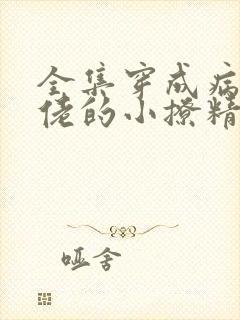 全集穿成病
佬的小撩精
哑舍